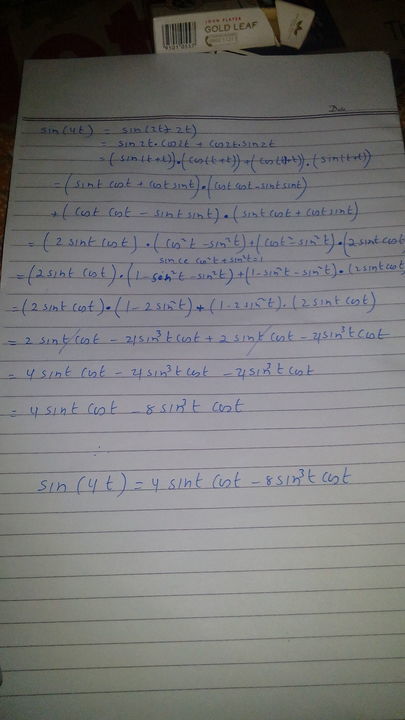 JOHN PLAYER
GOLD LEAF
Date
sin(4t) = sin(2t+2t)
= sin2t·cos2t + cos2t·sin2t
= (sin(t+t))·(cos(t+t))+(cos(t+t))·(sin(t+t))
= (sint cost + cost sint)·(cost cost - sint sint)
+ (cost cost - sint sint)·(sint cost + cost sint)
= (2 sint cost)·(cos²t - sin²t)+(cos²t - sin²t)·(2 sint cost
since cos²t + sin²t=1
= (2 sint cost)·(1 - sin²t - sin²t)+(1 - sin²t - sin²t)·(2 sint cost
= (2 sint cost)·(1 - 2 sin²t) + (1 - 2 sin²t)·(2 sint cost)
= 2 sint cost - 4 sin³t cost + 2 sint cost - 4 sin³t cost
= 4 sint cost - 4 sin³t cost - 4 sin³t cost
= 4 sint cost - 8 sin³t cost
∴
sin(4t) = 4 sint cost - 8 sin³t cost